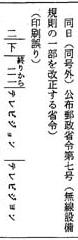 同日（同号外）公布郵政省令第七号（無線設備
規則の一部を改正する省令）
（印刷誤り）
二　下　終りから二　テレビジョン　テレビジョン